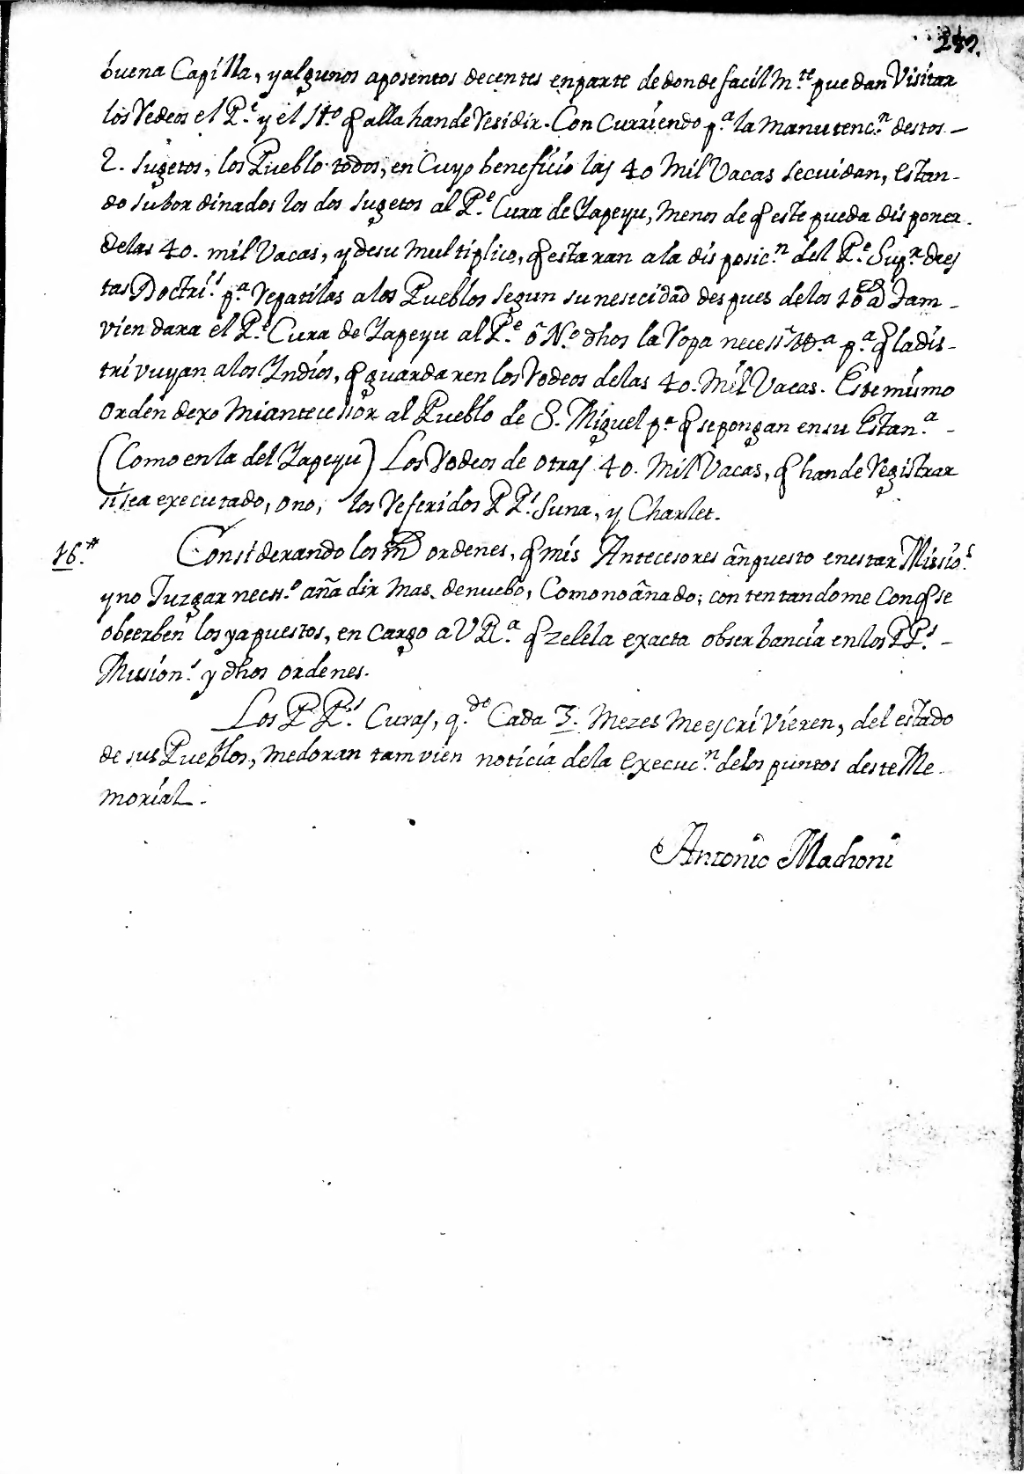 buena Capilla, y algunos aposentos decentes en parte de donde facilm.te puedan Visitar
los Rodeos el P.e y el H.o q alla han de residir. Concurriendo p.a la manutenc.n destos
2. sugetos, los Pueblo todos, en Cuyo beneficio las 40 Mil Vacas se cuidan, estan-
do subordinados los dos sugetos al P.e Cura de Yapeyu, menos de q este pueda disponer
de las 40. mil Vacas, y de su multiplico, q estaran a la disposic.n del P.e Sup.r des
tas Doctri.s p.a repatilas a los Pueblos segun su nesecidad despues de los 10 a.s Tam-
vien dara el P.e Cura de Yapeyu al P.e ô H.o dhos la ropa necess.a p.a q la dis-
trivuyan a los Yndios, q guardaren los rodeos de las 40. Mil Vacas. Este mismo
orden dexo mi antecessor al Pueblo de S. Miguel p.a q se pongan en su Estan.a
(Como en la del Yapeyu) Los rodeos de otras 40. Mil Vacas, q han de registrar
si sea executado, o no, los referidos P P.s Suna, y Charlet.
16.# Considerando los m ordenes, q mis Antecesores an puesto en estas Missio.s
y no Juzgar neces.o añadir mas de nuebo, Como no añado; contentandome con q se
obcerben los ya puestos, encargo a V R.a q zele la exacta obserbancia en los P P.s
Mision.s y dhos ordenes.
Los P P.s Curas, q.do Cada 3. Mezes me escrivieren, del estado
de sus Pueblos, me daran tamvien noticia de la execuc.n de los puntos deste Me
morial.
Antonio Machoni